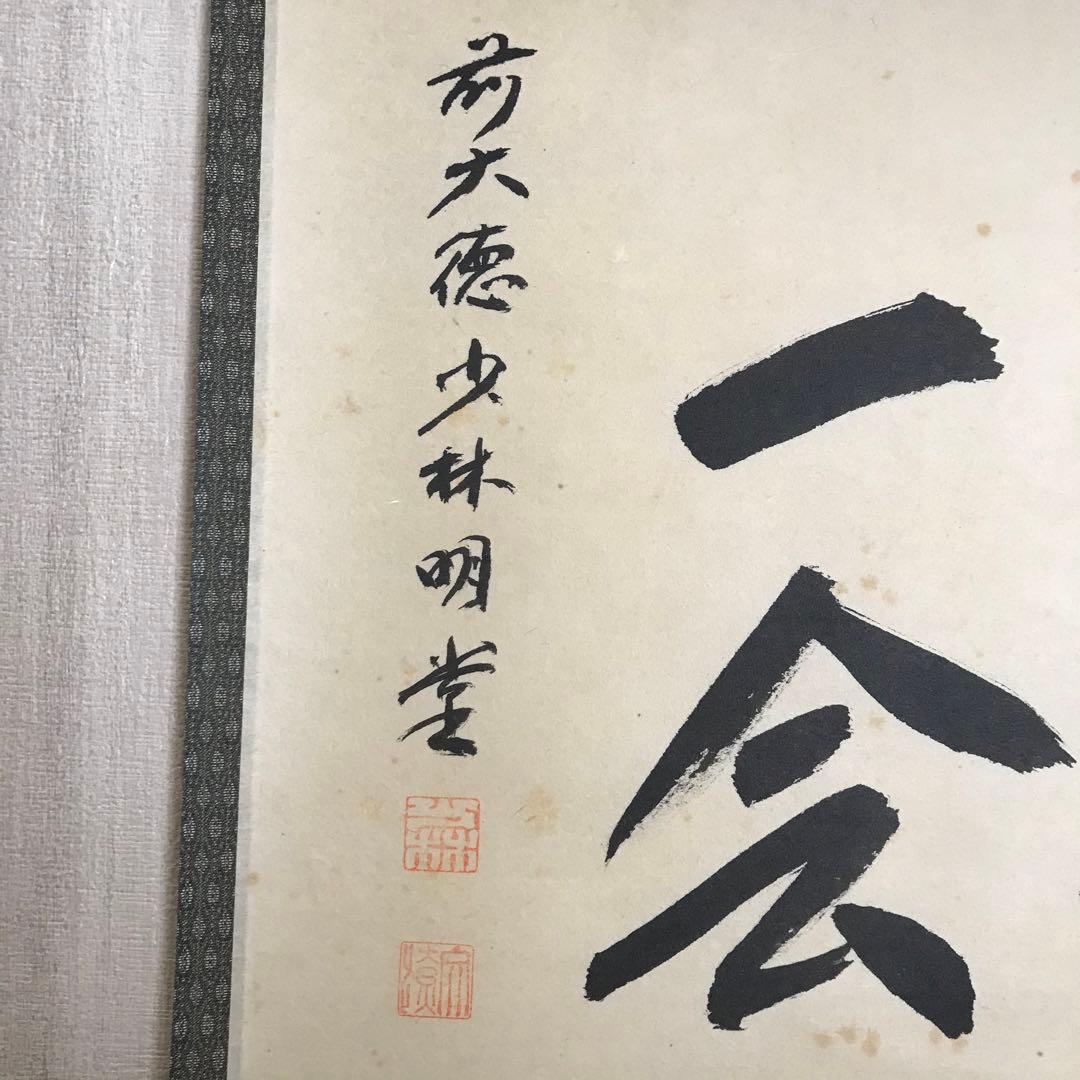 一会
前大徳少林明堂